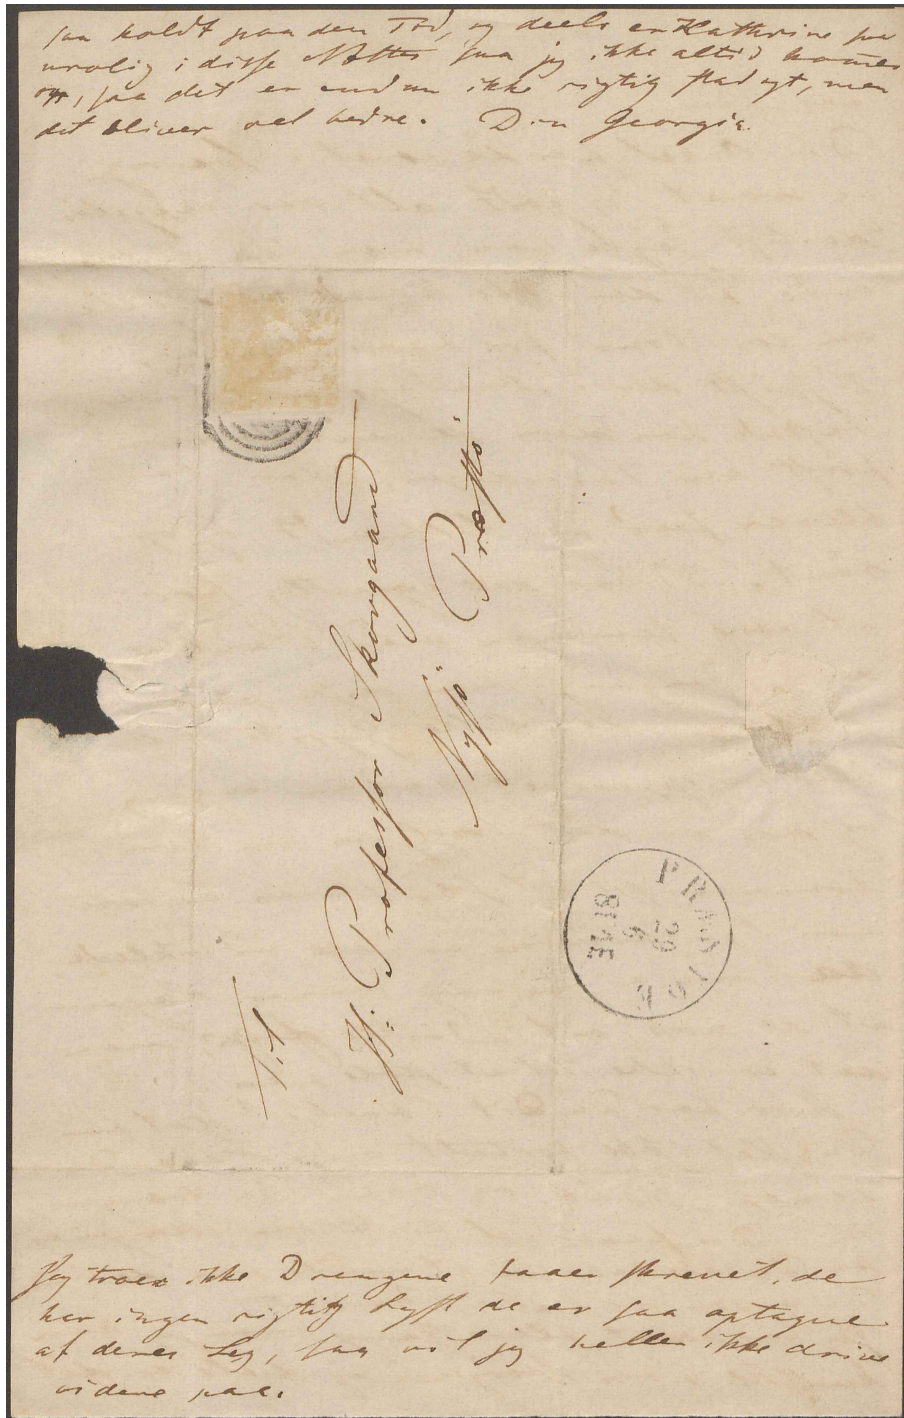 saa koldt paa den Tid, og deels er Kathrine saa
urolig i disse Nætter saa jeg ikke altid kommer
op, saa det er endnu ikke rigtig stadigt, men
det bliver vel bedre. Din Georgia.
Til
Hr: Professor Skovgaard
Nysö Præstö
PRÆSTÖE
29
6
Jeg troer ikke Drengene faaer skrevet, de
har ingen rigtig Lyst de er saa optagne
af deres Leg, saa vil jeg heller ikke drive
videre paa.